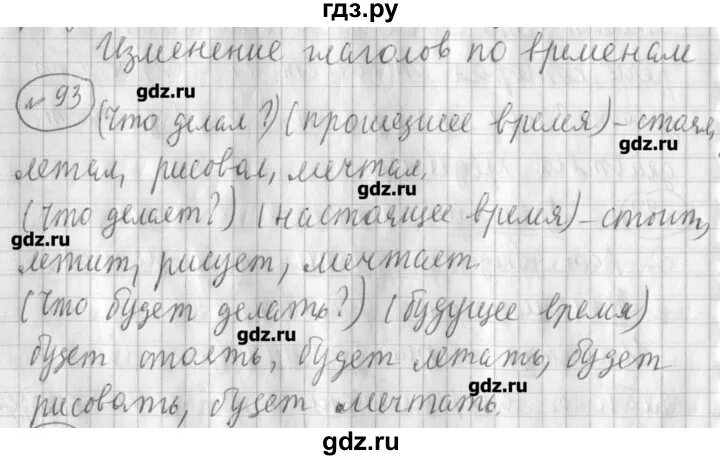 гдз.ру
Изменение глаголов по временам
№ 93
gdz.ru
(что делал?) (прошедшее время) – стоял,
gdz.ru
летал, рисовал, мечтал.
gdz.ru
(что делает?) (настоящее время) – стоит,
gdz.ru
летит, рисует, мечтает.
(что будет делать?) (будущее время)
gdz.ru
будет стоять, будет летать, будет
gdz.ru
рисовать, будет мечтать.
gdz.ru